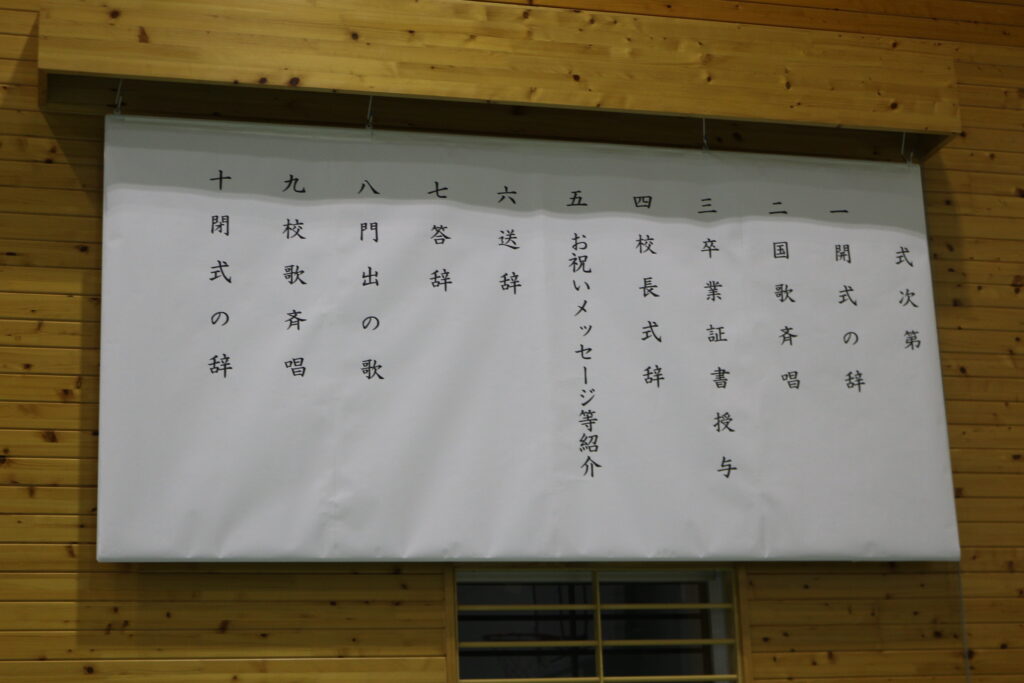 式次第
一 開式の辞
二 国歌斉唱
三 卒業証書授与
四 校長式辞
五 お祝いメッセージ等紹介
六 送辞
七 答辞
八 門出の歌
九 校歌斉唱
十 閉式の辞